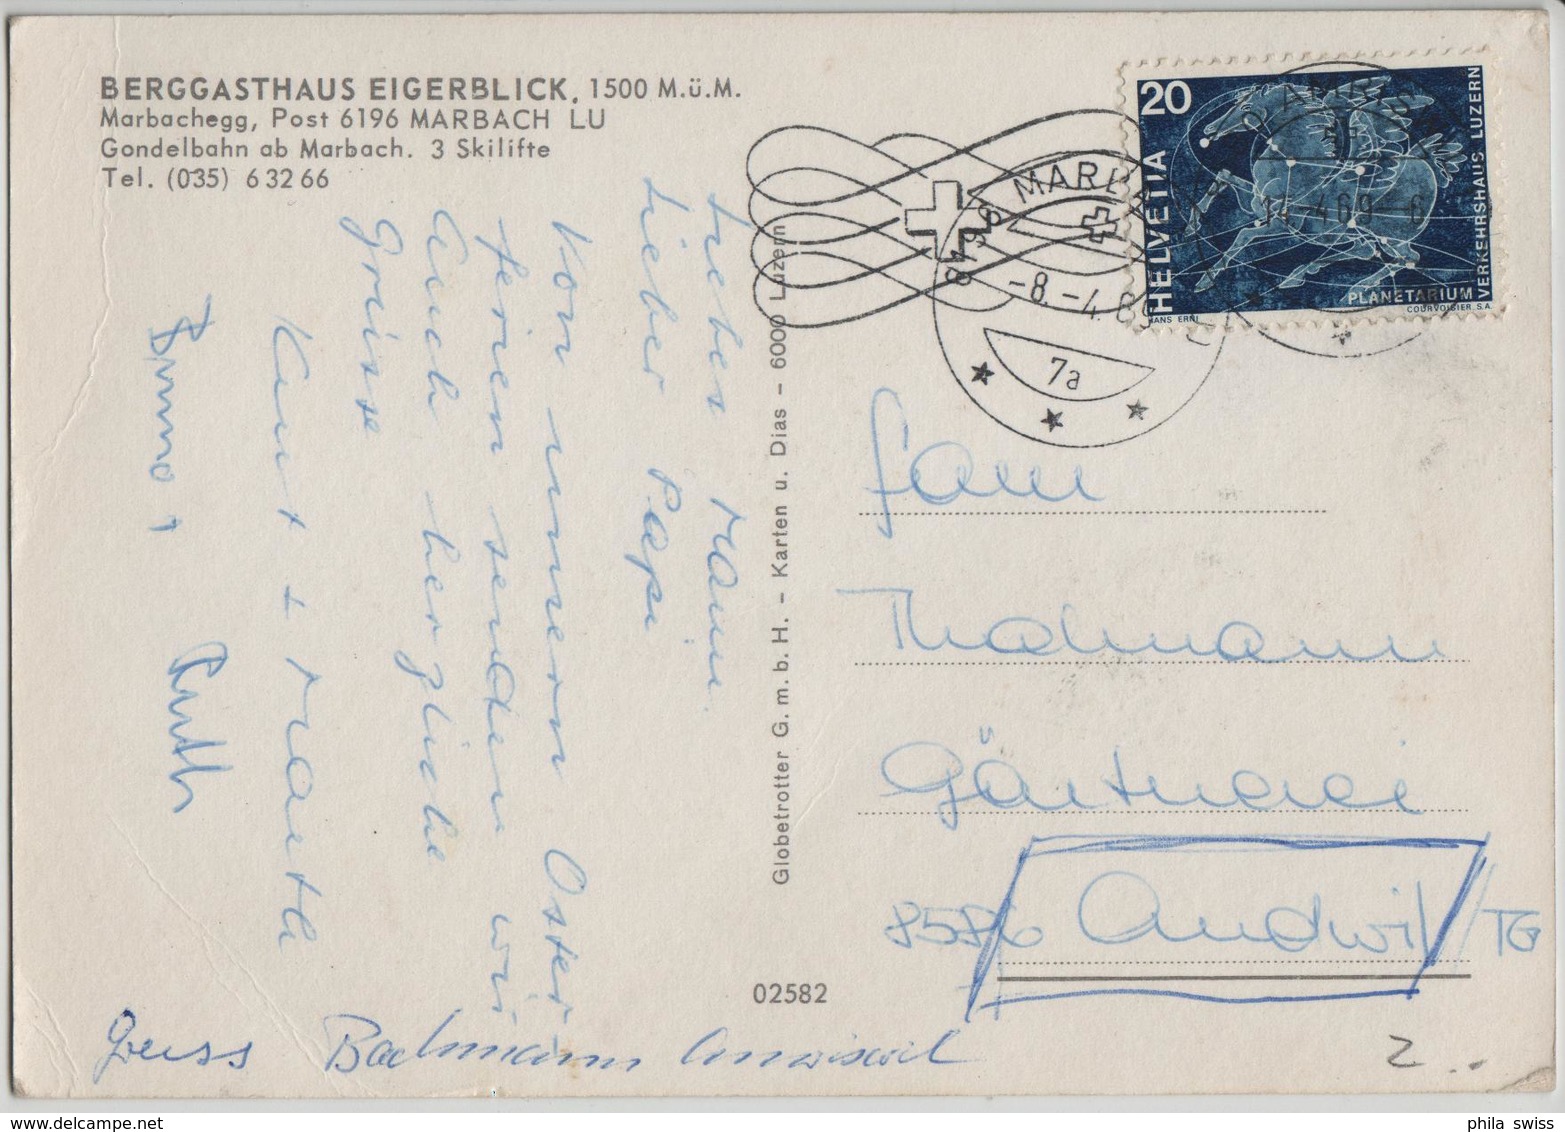 BERGGASTHAUS EIGERBLICK, 1500 M.ü.M.
Marbachegg, Post 6196 MARBACH LU
Gondelbahn ab Marbach. 3 Skilifte
Tel. (035) 6 32 66
Liebes Mami.
Lieber Papi
Von unsern Oster
ferien senden wir
Euch herzliche
Grüsse
Kurt + Martha
Bruno, Ruth
Gruss Bachmann
Globetrotter G.m.b.H. – Karten u. Dias – 6000 Luzern
02582
20
HELVETIA
PLANETARIUM
VERKEHRSHAUS LUZERN
HANS ERNI
COURVOISIER S.A.
-8.-4.69
7a
14.-4.69-6
Fam
Thalmann
Gärtnerei
8586 Andwil/TG
2..
phila swiss